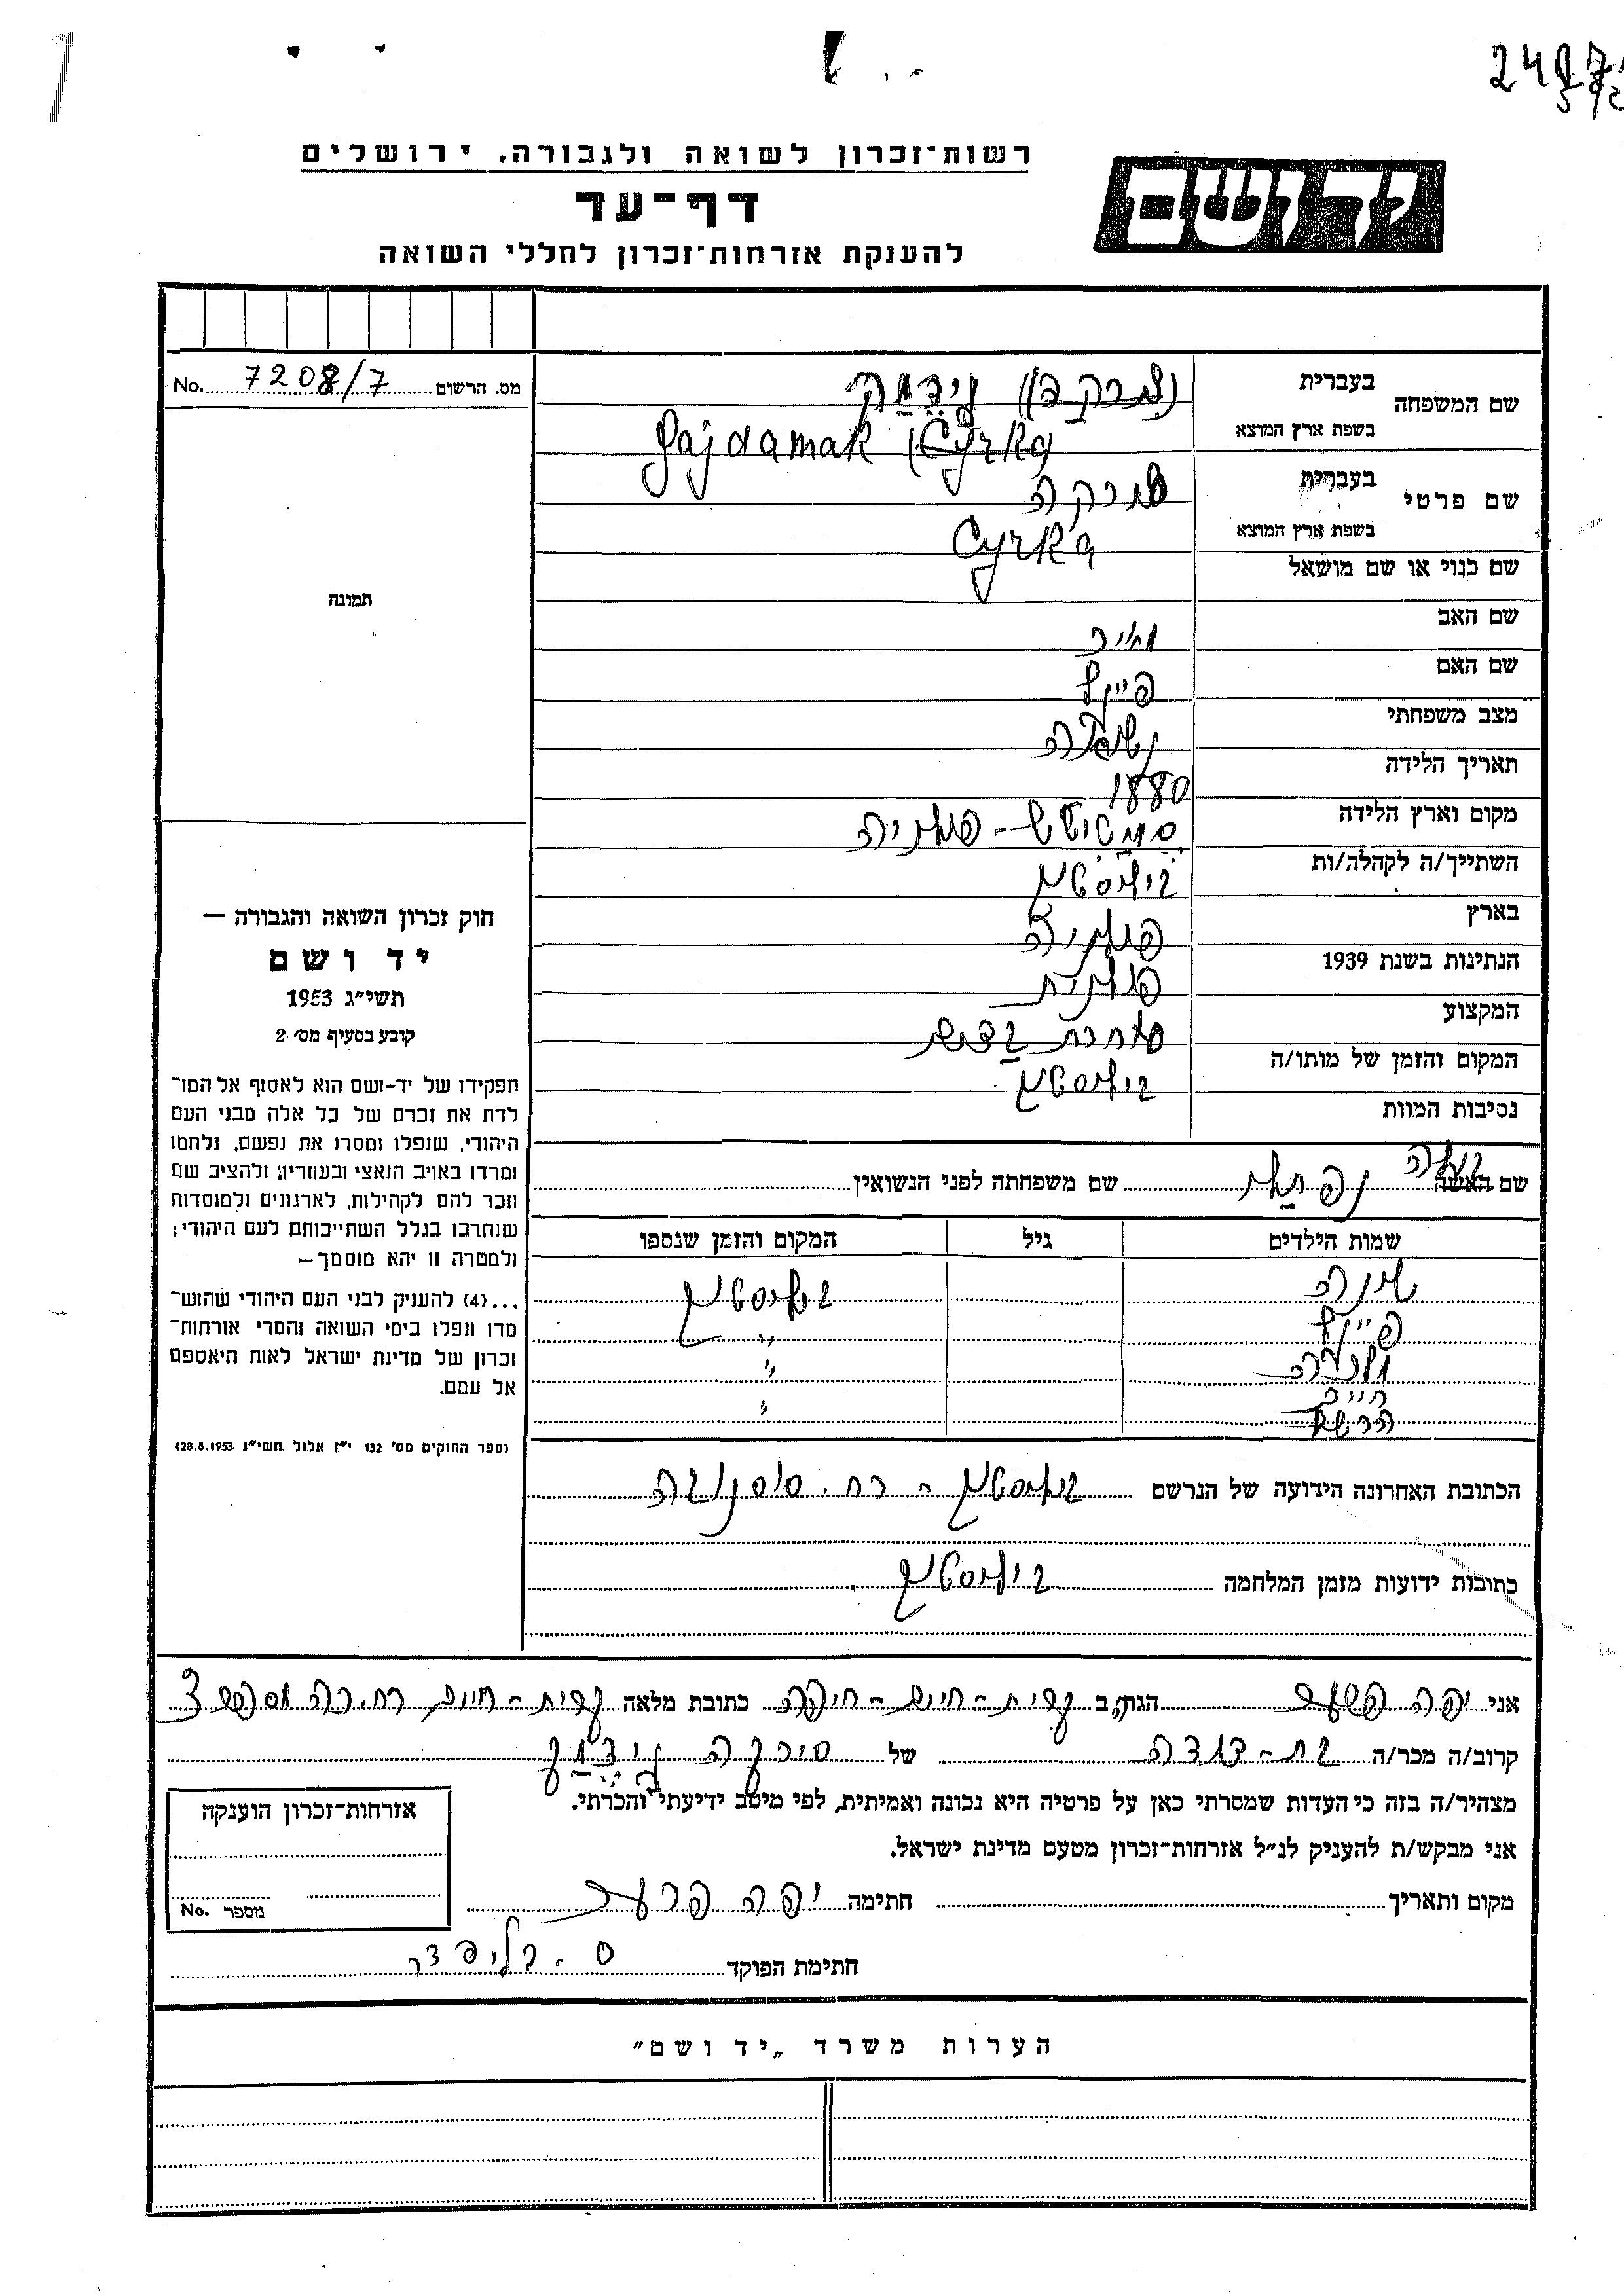 רשות־זכרון לשואה ולגבורה, ירושלים
יד ושם
דף־עד
להענקת אזרחות־זכרון לחללי השואה
מס. הרשום 7208/7 No.
שם המשפחה
בעברית גידמק
בשפת ארץ המוצא Gajdamak (Cyrka
שם פרטי
בעברית צירקה
בשפת ארץ המוצא Cyrka
שם כנוי או שם מושאל
שם האב מאיר
שם האם פייגל
מצב משפחתי נשואה
תאריך הלידה 1880
מקום וארץ הלידה פולניה
השתייך/ה לקהלה/ות ביאליסטוק
בארץ פולניה
הנתינות בשנת 1939 פולנית
המקצוע סוחרת
המקום והזמן של מותו/ה ביאליסטוק
נסיבות המוות
שם האשה בעלה נפתלי שם משפחתה לפני הנשואין
שמות הילדים גיל המקום והזמן שנספו
ביאליסטוק
פייגל "
"
חיים "
הרשל
הכתובת האחרונה הידועה של הנרשם ביאליסטוק - רח.
כתובות ידועות מזמן המלחמה ביאליסטוק
תמונה
חוק זכרון השואה והגבורה —
יד ושם
תשי״ג 1953
קובע בסעיף מס׳ 2
תפקידו של יד-ושם הוא לאסוף אל המו־
לדת את זכרם של כל אלה מבני העם
היהודי, שנפלו ומסרו את נפשם, נלחמו
ומרדו באויב הנאצי ובעוזריו, ולהציב שם
וזכר להם לקהילות, לארגונים ולמוסדות
שנחרבו בגלל השתייכותם לעם היהודי;
ולמטרה זו יהא מוסמך —
...(4) להעניק לבני העם היהודי שהוש־
מדו ונפלו בימי השואה והמרי אזרחות־
זכרון של מדינת ישראל לאות היאספם
אל עמם.
(ספר החוקים מס׳ 132 י״ז אלול תשי״ג 28.8.1953)
אני יפה הגר/ה ב קרית-חיים-חיפה כתובת מלאה קרית-חיים
קרוב/ה מכר/ה בת-דודה של צירקה גידמק
מצהיר/ה בזה כי העדות שמסרתי כאן על פרטיה היא נכונה ואמיתית, לפי מיטב ידיעתי והכרתי.
אני מבקש/ת להעניק לנ״ל אזרחות־זכרון מטעם מדינת ישראל.
מקום ותאריך חתימה יפה
חתימת הפוקד
אזרחות־זכרון הוענקה
מספר No.
הערות משרד „יד ושם״